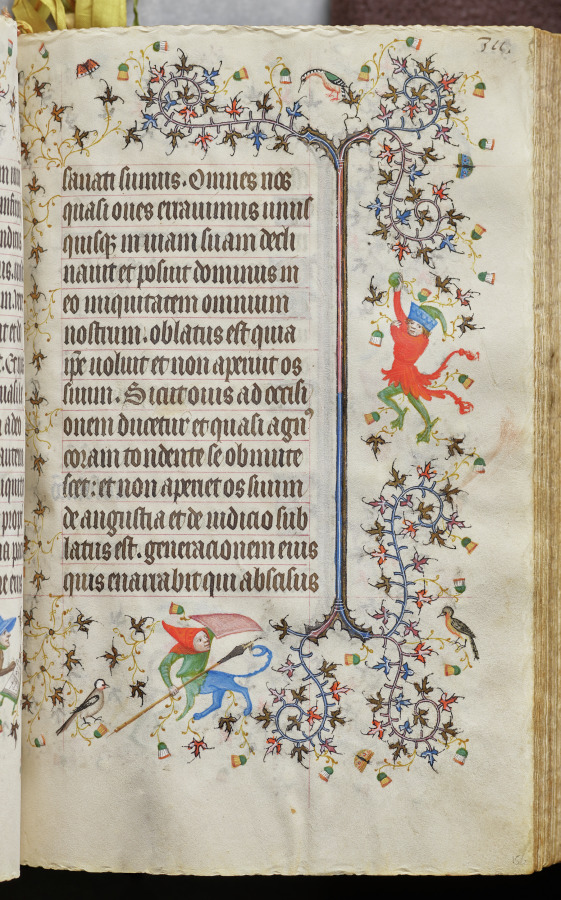 sanati sumus. Omnes nos
quasi oues errauimus unus
quisqz in uiam suam decli
nauit et posuit dominus in
eo iniquitatem omnium
nostrum. oblatus est quia
ipe uoluit et non aperuit os
suum. Sicut ouis ad occisi
onem ducetur et quasi agn'
coram tondente se obmute
scet: et non aperiet os suum
de angustia et de iudicio sub
latus est. generacionem eius
quis enarrabit qui abscisus